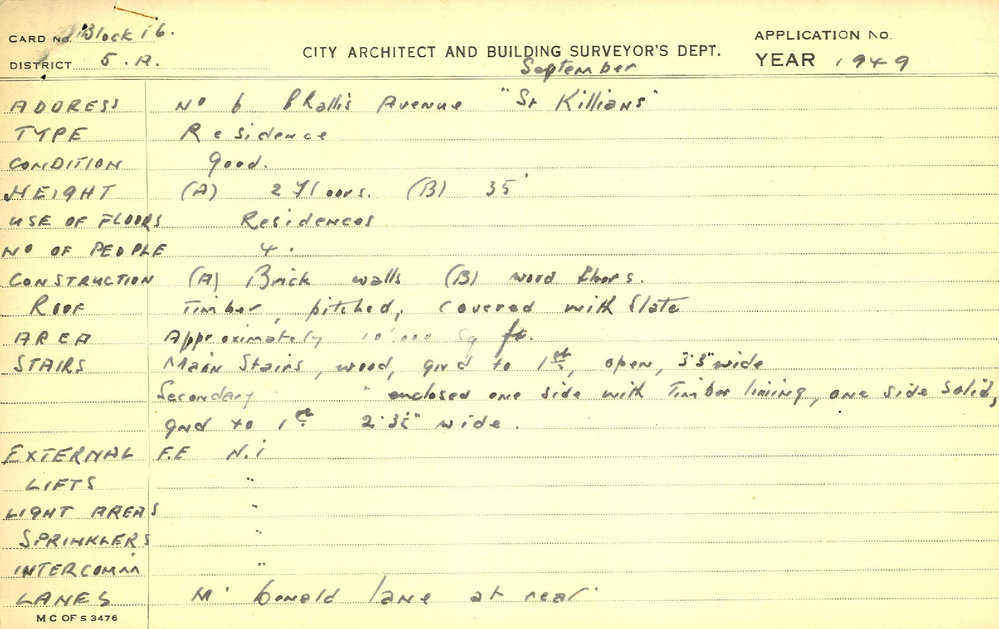 CARD No. Block 16.
CITY ARCHITECT AND BUILDING SURVEYOR'S DEPT.
APPLICATION No.
DISTRICT 5.A.
September
YEAR 1949
ADDRESS No 6 Challis Avenue "St Killians"
TYPE Residence
CONDITION Good.
HEIGHT (A) 2 Floors. (B) 35'
USE OF FLOORS Residences
No OF PEOPLE 4.
CONSTRUCTION (A) Brick walls (B) wood floors.
ROOF Timber, pitched, covered with Slate
AREA Approximately 10,000 sq ft.
STAIRS Main Stairs, wood, gnd to 1st, open, 3'3" wide
Secondary " enclosed one side with Timber lining, one side Solid,
gnd to 1st wide.
EXTERNAL F.E N.i
LIFTS "
LIGHT AREAS "
SPRINKLERS "
INTERCOMM "
LANES Mc Donald lane at rear.
M C OF S 3476